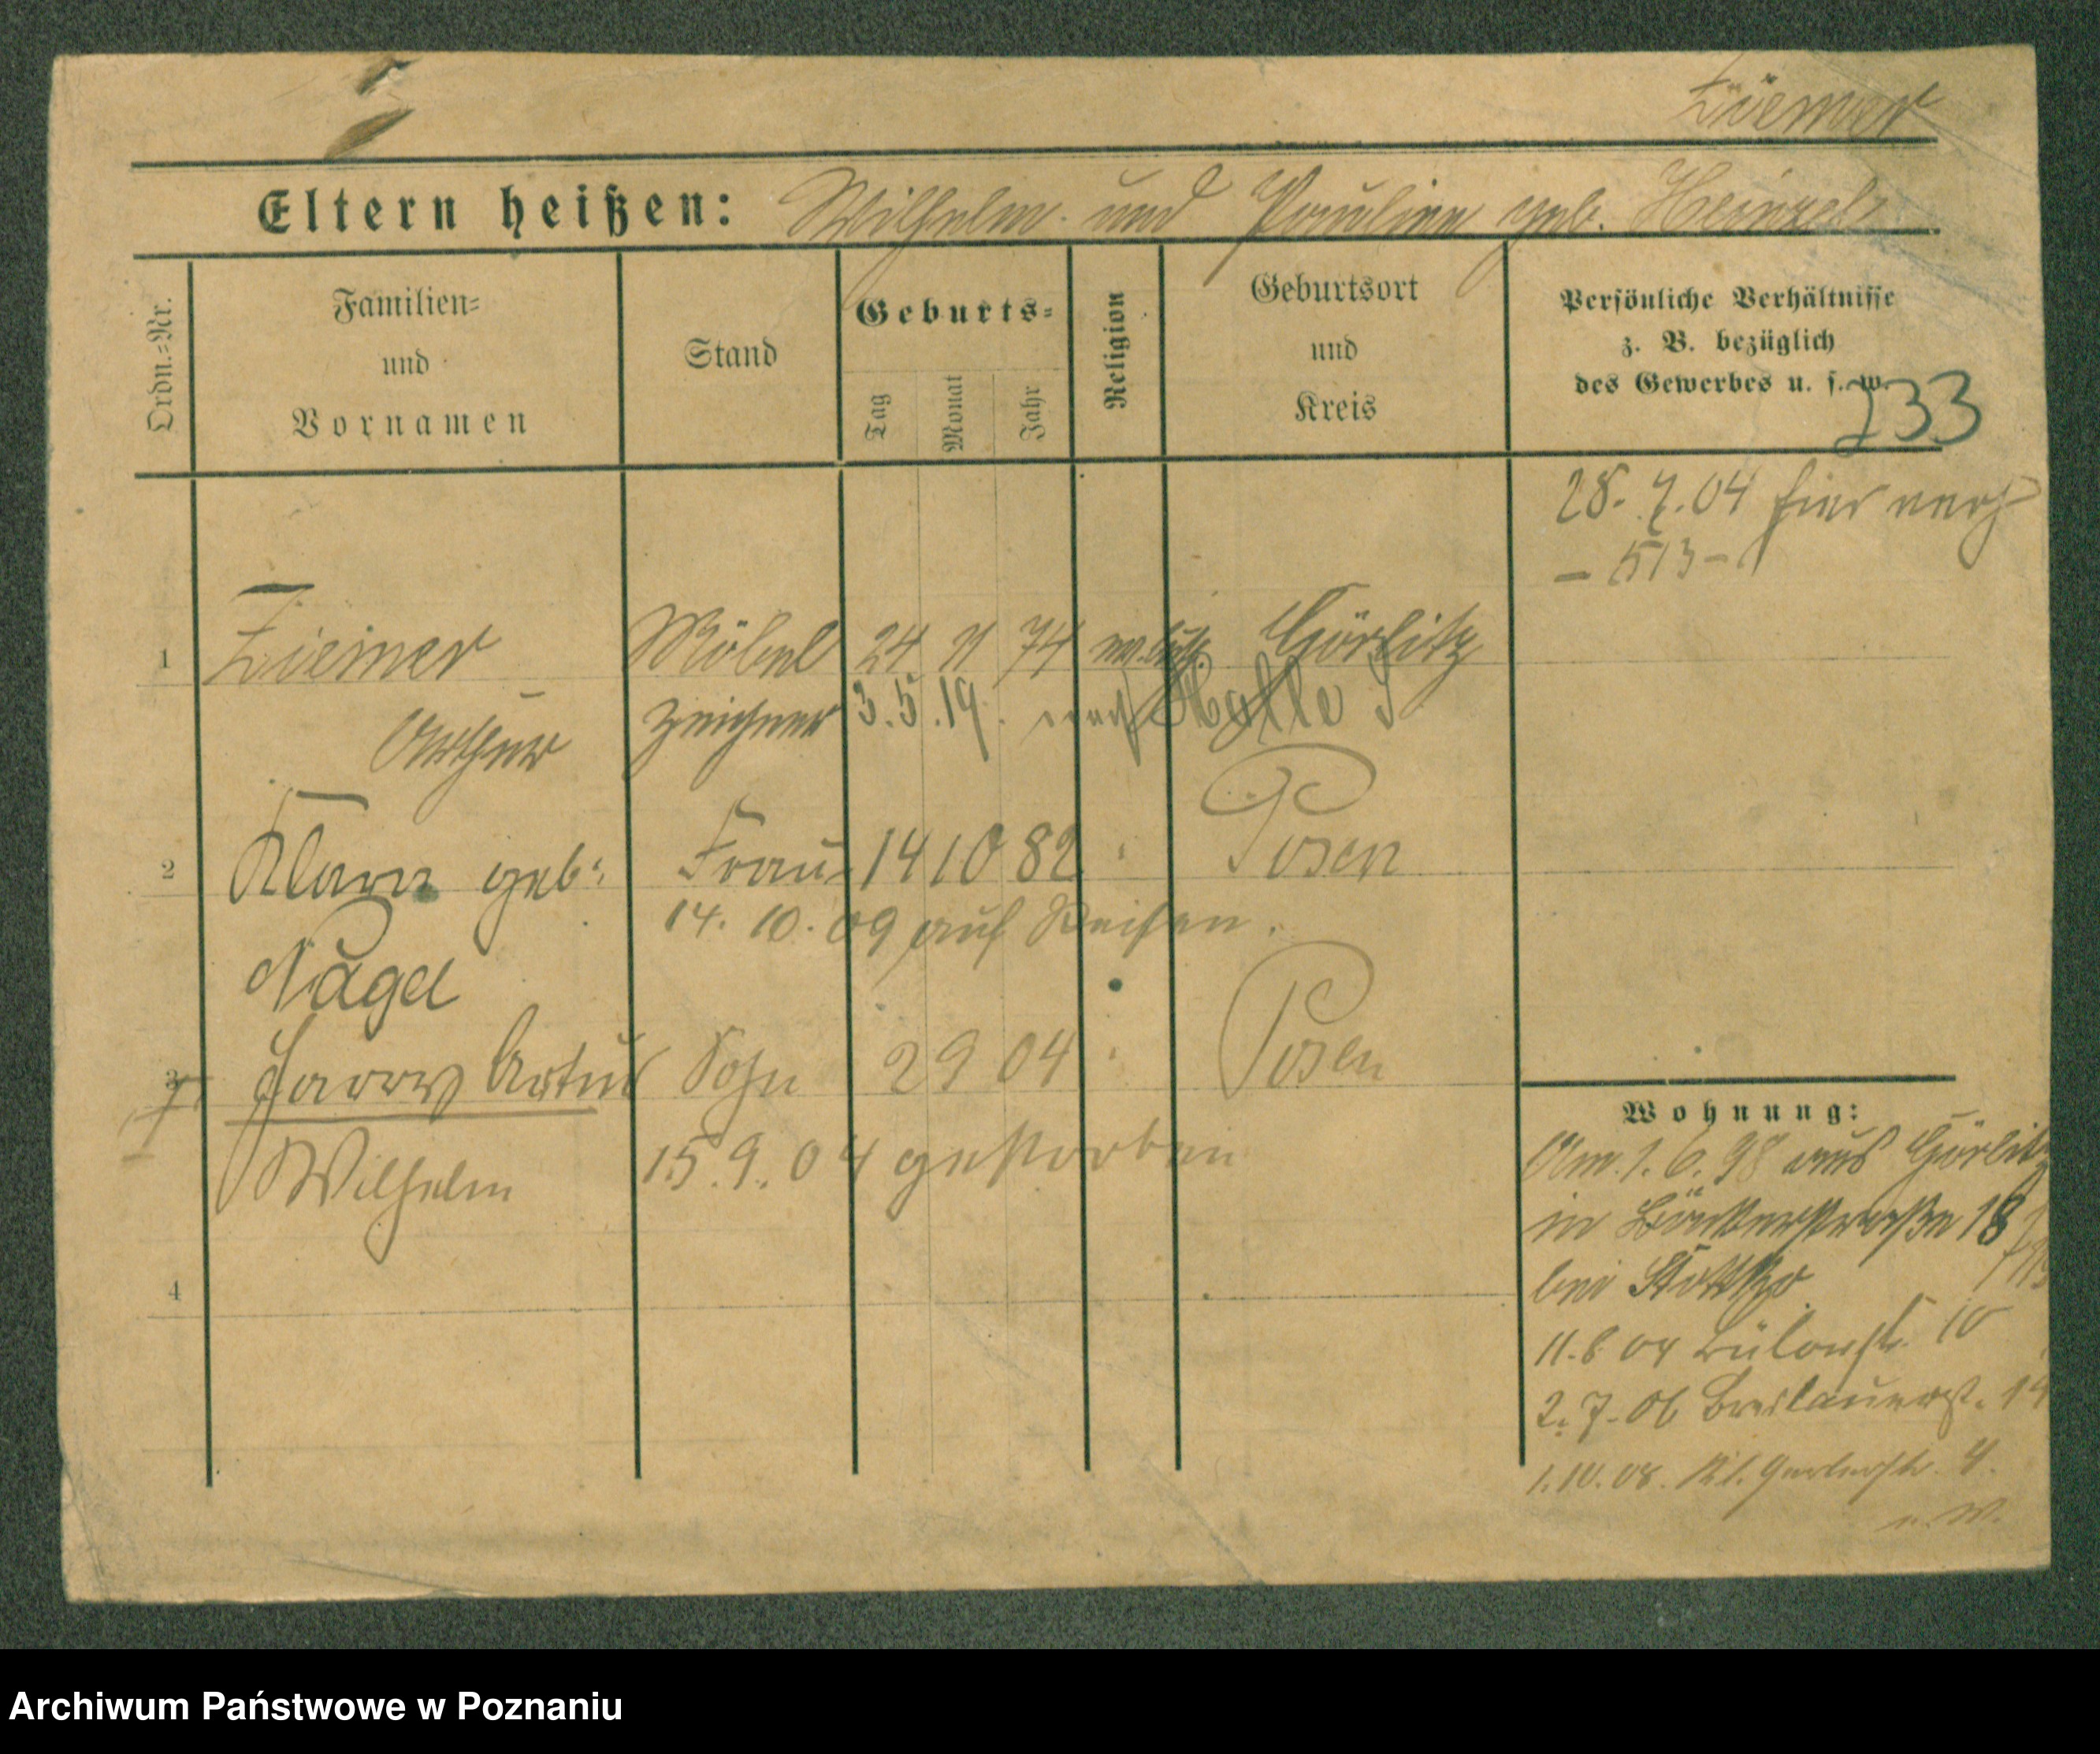 Ziemer
Eltern heißen: Wilhelm und Pauline geb. Heinzel
Ordn.=Nr.
Familien=
und
Vornamen
Stand
Geburts=
Tag
Monat
Jahr
Religion
Geburtsort
und
Kreis
Persönliche Verhältnisse
z. B. bezüglich
des Gewerbes u. s. w.
233
28. 7. 04 hier verh
– 513 –
1 Ziemer Möbel 24 11 74 Görlitz
Arthur zeichner 3. 5. 19. nach Halle S
2 Klara geb: Frau 14 10 82 " Posen
14. 10. 09 auf Reisen.
Nagel
3 Harry Artur Sohn 2 9 04 " Posen
Wilhelm 15. 9. 04 gestorben
4
Wohnung:
Am 1. 6. 98 aus Görlitz
in Bäckerstraße 18
bei
11. 8 04 Bülowstr. 10
2. 7. 06 Breslauerst. 14
1. 10. 08. Kl. Gerberstr. 4.